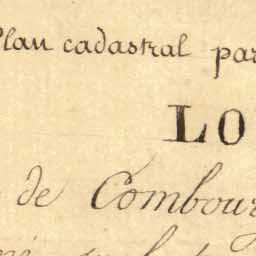 Plan cadastral par
LO
de Combour